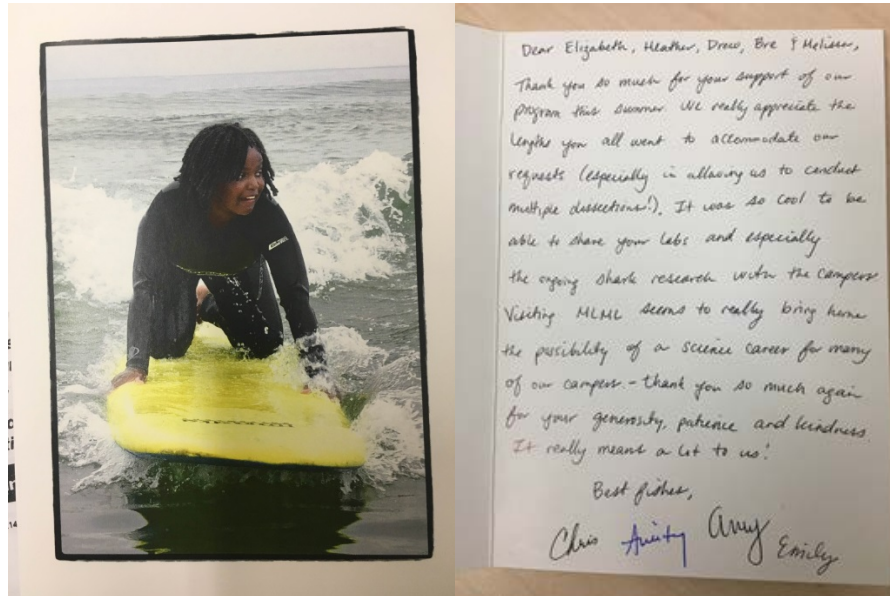 Dear Elizabeth, Heather, Drew, Bre & Melissa,
Thank you so much for your support of our
program this summer. We really appreciate the
lengths you all went to accommodate our
requests (especially in allowing us to conduct
multiple dissections!). It was so cool to be
able to share your labs and especially
the ongoing shark research with the campers.
Visiting MLML seems to really bring home
the possibility of a science career for many
of our campers. - thank you so much again
for your generosity, patience and kindness.
It really means a lot to us!
Best fishes,
Chris Amity Amy Emily